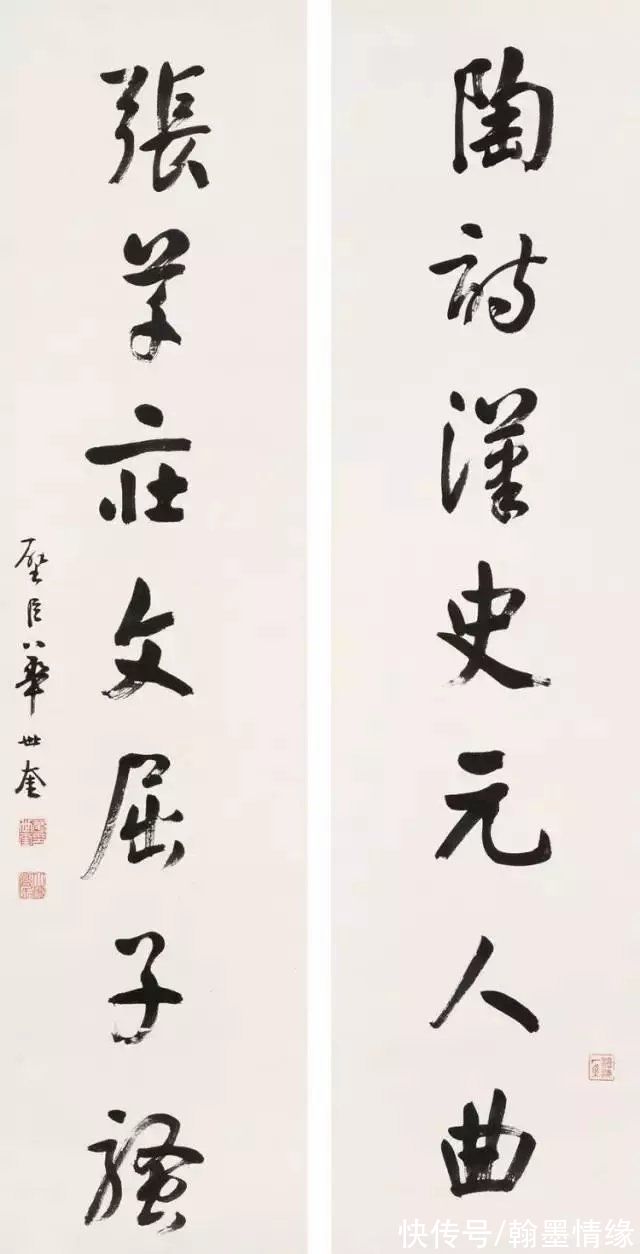 陶詩漢史元人曲
張草莊文屈子騷
璧臣華世奎
快传号/翰墨情缘